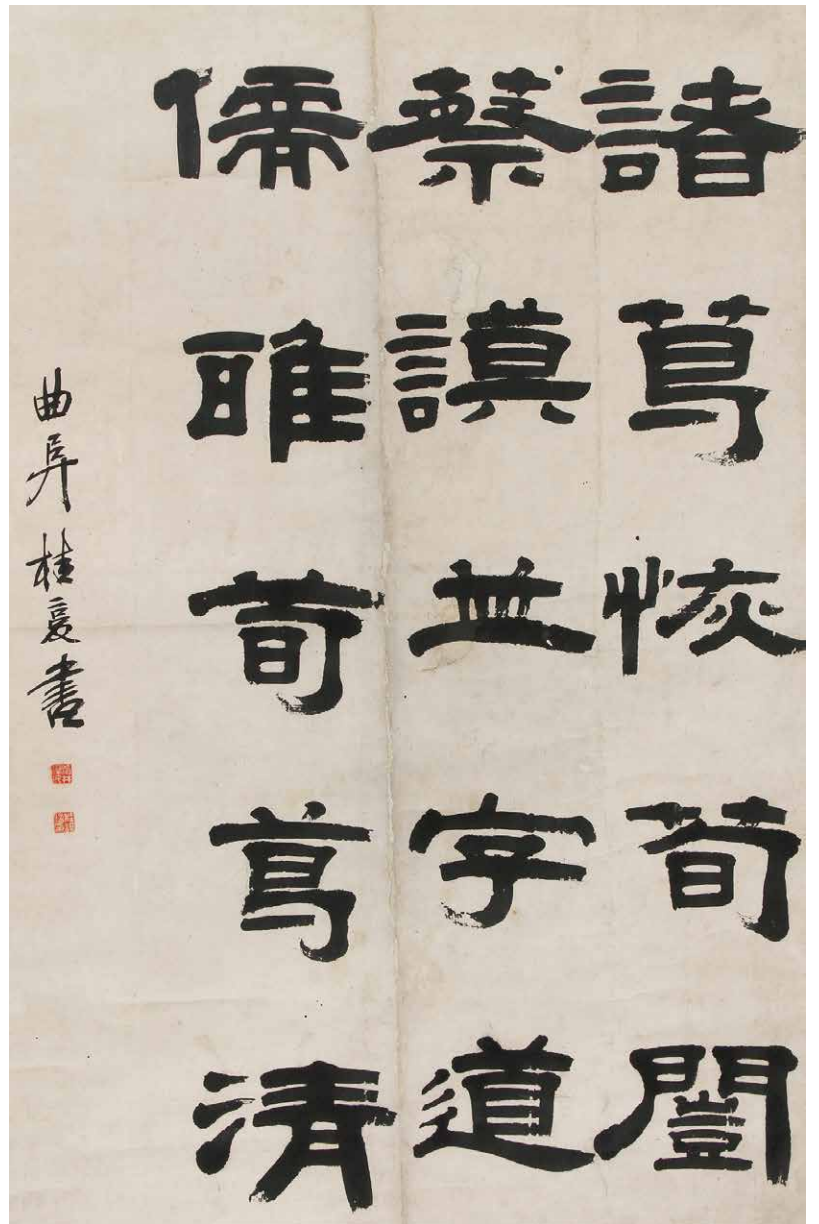 諸葛恢荀闓
蔡謨並字道
儒雅荀葛清
曲阜桂馥書